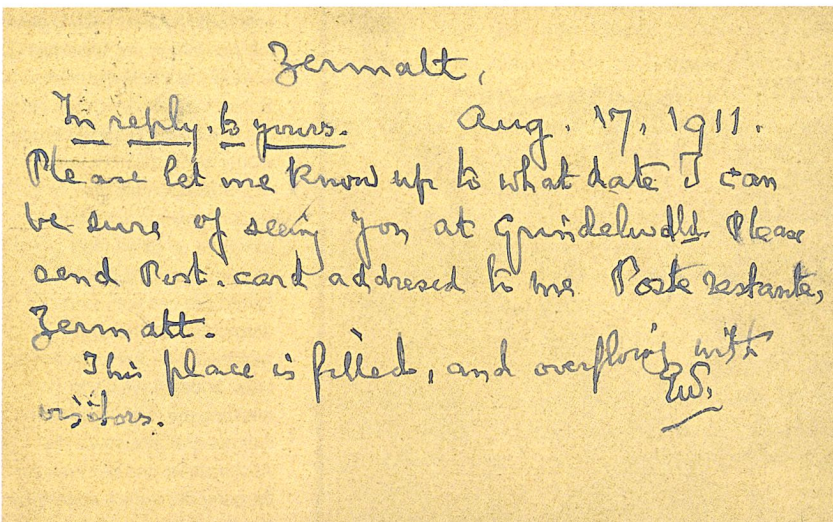 Zermatt,
In reply. to yours. Aug. 17, 1911.
Please let me know up to what date I can
be sure of seeing you at Grindelwald. Please
send Post.card addresed to me Poste restante,
Zermatt.
This place is filled, and overflowing with
visitors.